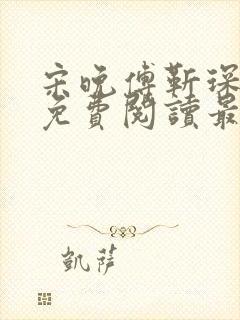 宋晚傅靳琛
免費閱讀最
凱薩